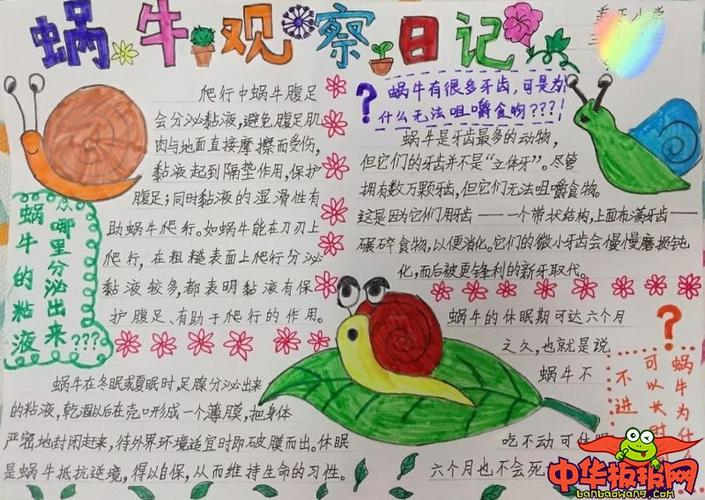 蜗牛观察日记
爬行中蜗牛腹足
会分泌黏液,避免腹足肌
肉与地面直接摩擦而受伤,
黏液起到隔垫作用,保护
腹足;同时黏液的湿滑性有
助蜗牛爬行。如蜗牛能在刀刃上
爬行,在粗糙表面上爬行分泌
黏液较多,都表明黏液有保
护腹足、有助于爬行的作用。
蜗牛的黏液
从哪里分泌出来???
蜗牛在冬眠或夏眠时足腺分泌出来
的粘液,乾涸以后在壳口形成一个薄膜,把身体
严密地封闭起来,待外界环境适宜时即破膜而出。休眠
是蜗牛抵抗逆境,得以自保,从而维持生命的习性。
?蜗牛有很多牙齿,可是为
什么无法咀嚼食物???!
蜗牛是牙齿最多的动物,
但它们的牙齿并不是“立体牙”。尽管
拥有数万颗牙齿,但它们无法咀嚼食物。
这是因为它们用齿——一个带状结构,上面布满牙齿——
碾碎食物,以便消化。它们的微小牙齿会慢慢磨损钝
化,而后被更锋利的新牙取代。
蜗牛的休眠期可达六个月
之久,也就是说
蜗牛不
吃不动可休眠
六个月也不会死
?
蜗牛为什
可以长时
不进
中华板报网
banbaowang.com